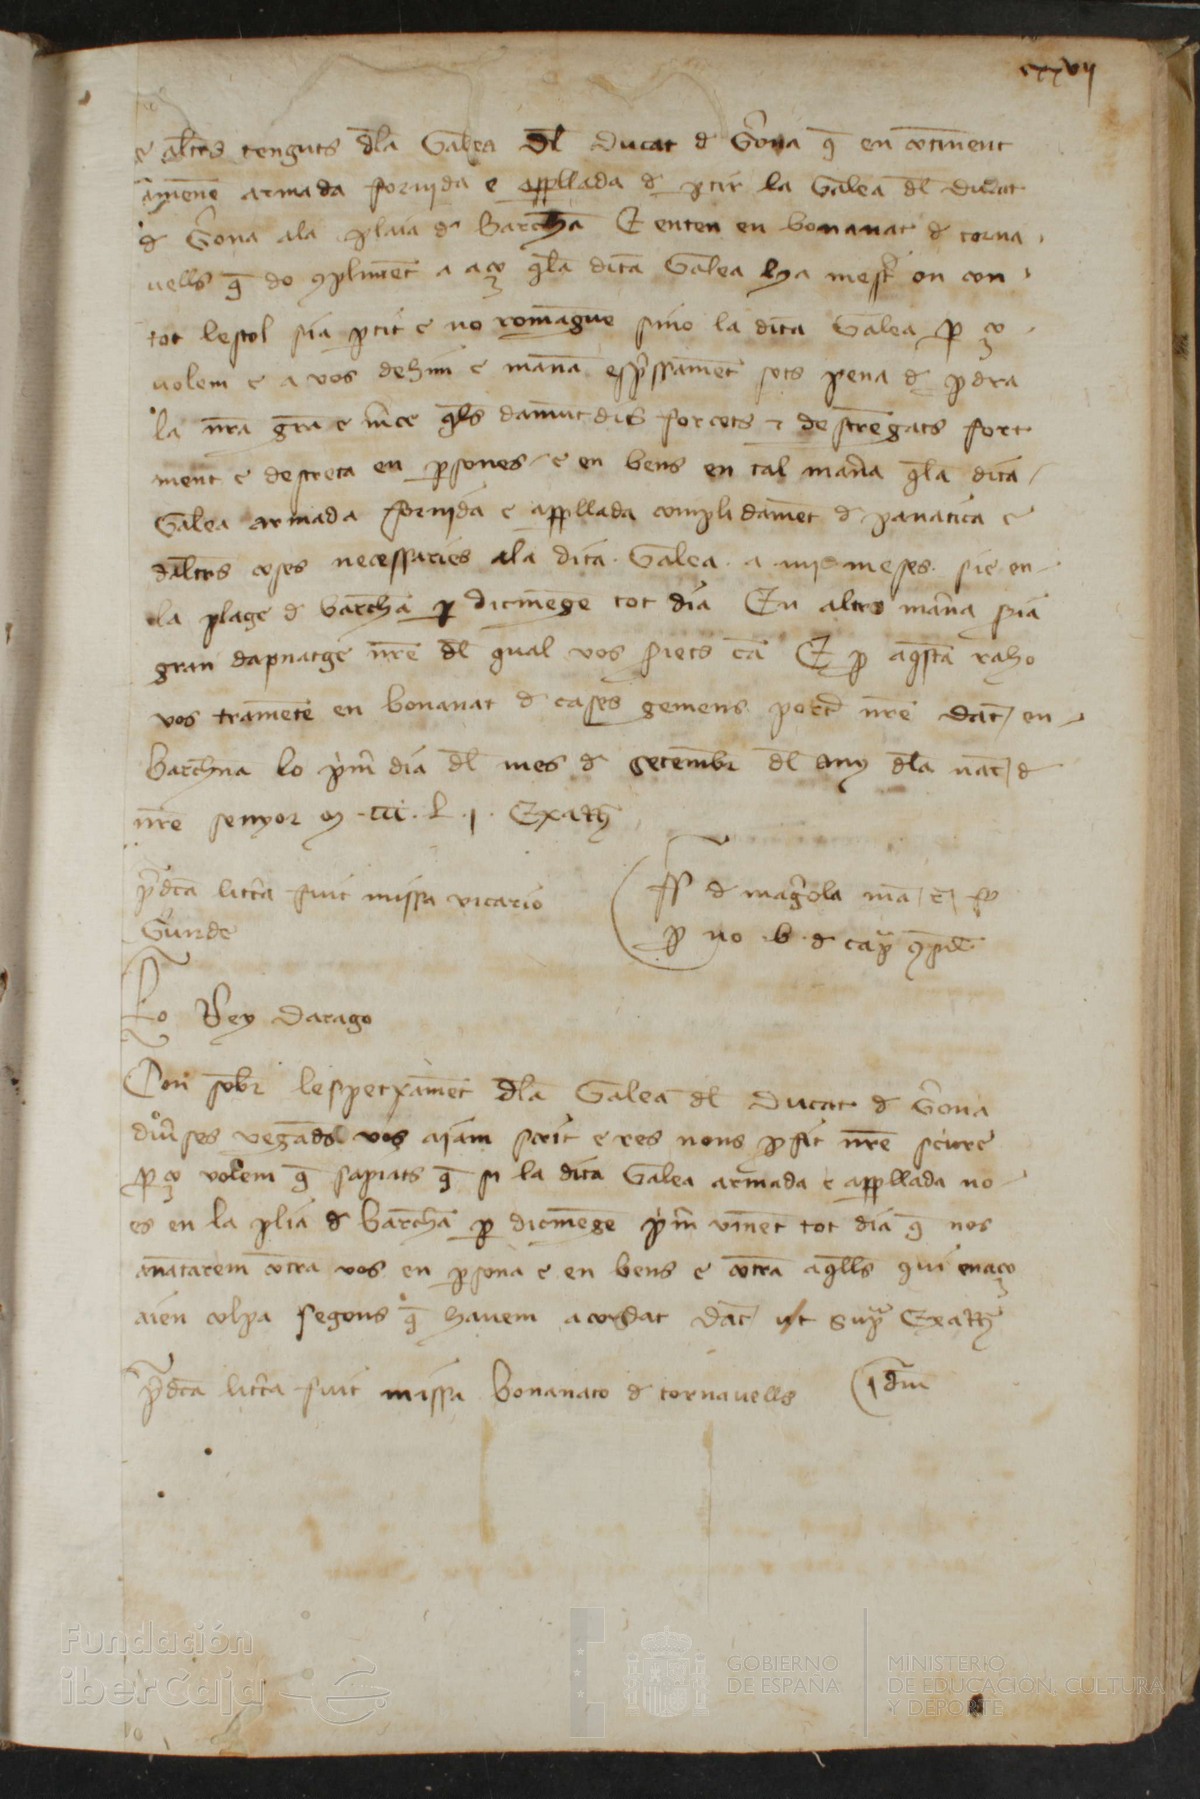 cxxvij
e alt̄rs tenguts d̄la Galea d̄l Ducat d G̃ona q̄ en cōtinent
amenē armada fornida e appllada d ptir la Galea d̄l ducat
d G̃ona ala plaia d Barch̄a E enten en bonanat d torna
uells q̄ do ꝯplimēt a aço q̄la dita Galea hya mest̃ on con
tot lestol sia ꝑtit e no romāgue sino la dita Galea ꝑ ço
uolem e a vos dehim e manā exp̃ssamēt sots pena d ꝑdra
la nr̄a gr̄a e m̃ce q̄ls damūt dits forcets e destrēgats fort
ment e destreta en ꝑsones e en bens en tal man̄a q̄la dita
Galea armada fornida e appllada complidamēt d panatica e
dalt̄rs coses necessaries ala dita Galea a iiij meses sie en
la plage d barch̄a ꝑ dicmēge tot dia En altra man̄a sia
gran dapnatge nr̄e d̄l qual vos siets cā E ꝑ aq̄sta raho
vos trametē en bonanat d cases gemens port̃ nr̄e dat̄ en
barchn̄a lo p̃m̃ dia d̄l mes d setembr̄ d̄l any d̄la nat̄ d
nr̄e senyor m ccc L j Exatꝶ
p̃dc̄a litt̃a fuit missa vicario
G̃unde
ff d mag̃ola mā
ꝑ no b d cap̃
Lo Rey Darago
Con sobr̄ lespetxamēt d̄la Galea d̄l Ducat d G̃ona
diũses vegad̄s vos aiam sc̃it e res nons ꝑfit nr̄e sciure
ꝑ ço volem q̄ sapiats q̄ si la dita Galea armada e appllada no
es en la plia d barch̄a ꝑ dicmēge p̃m̃ vinēt tot dia q̄ nos
anātarem cōtra vos en ꝑsona e en bens e cōtra aq̄lls qui enaço
aien colpa segons q̄ hauem acordat dat̄ ut sup̃ Exatꝶ
p̃dc̄a litt̃a fuit missa bonanato d tornauells
Idm̄
Fundación
iberCaja
GOBIERNO
DE ESPAÑA
MINISTERIO
DE EDUCACIÓN, CULTURA
Y DEPORTE